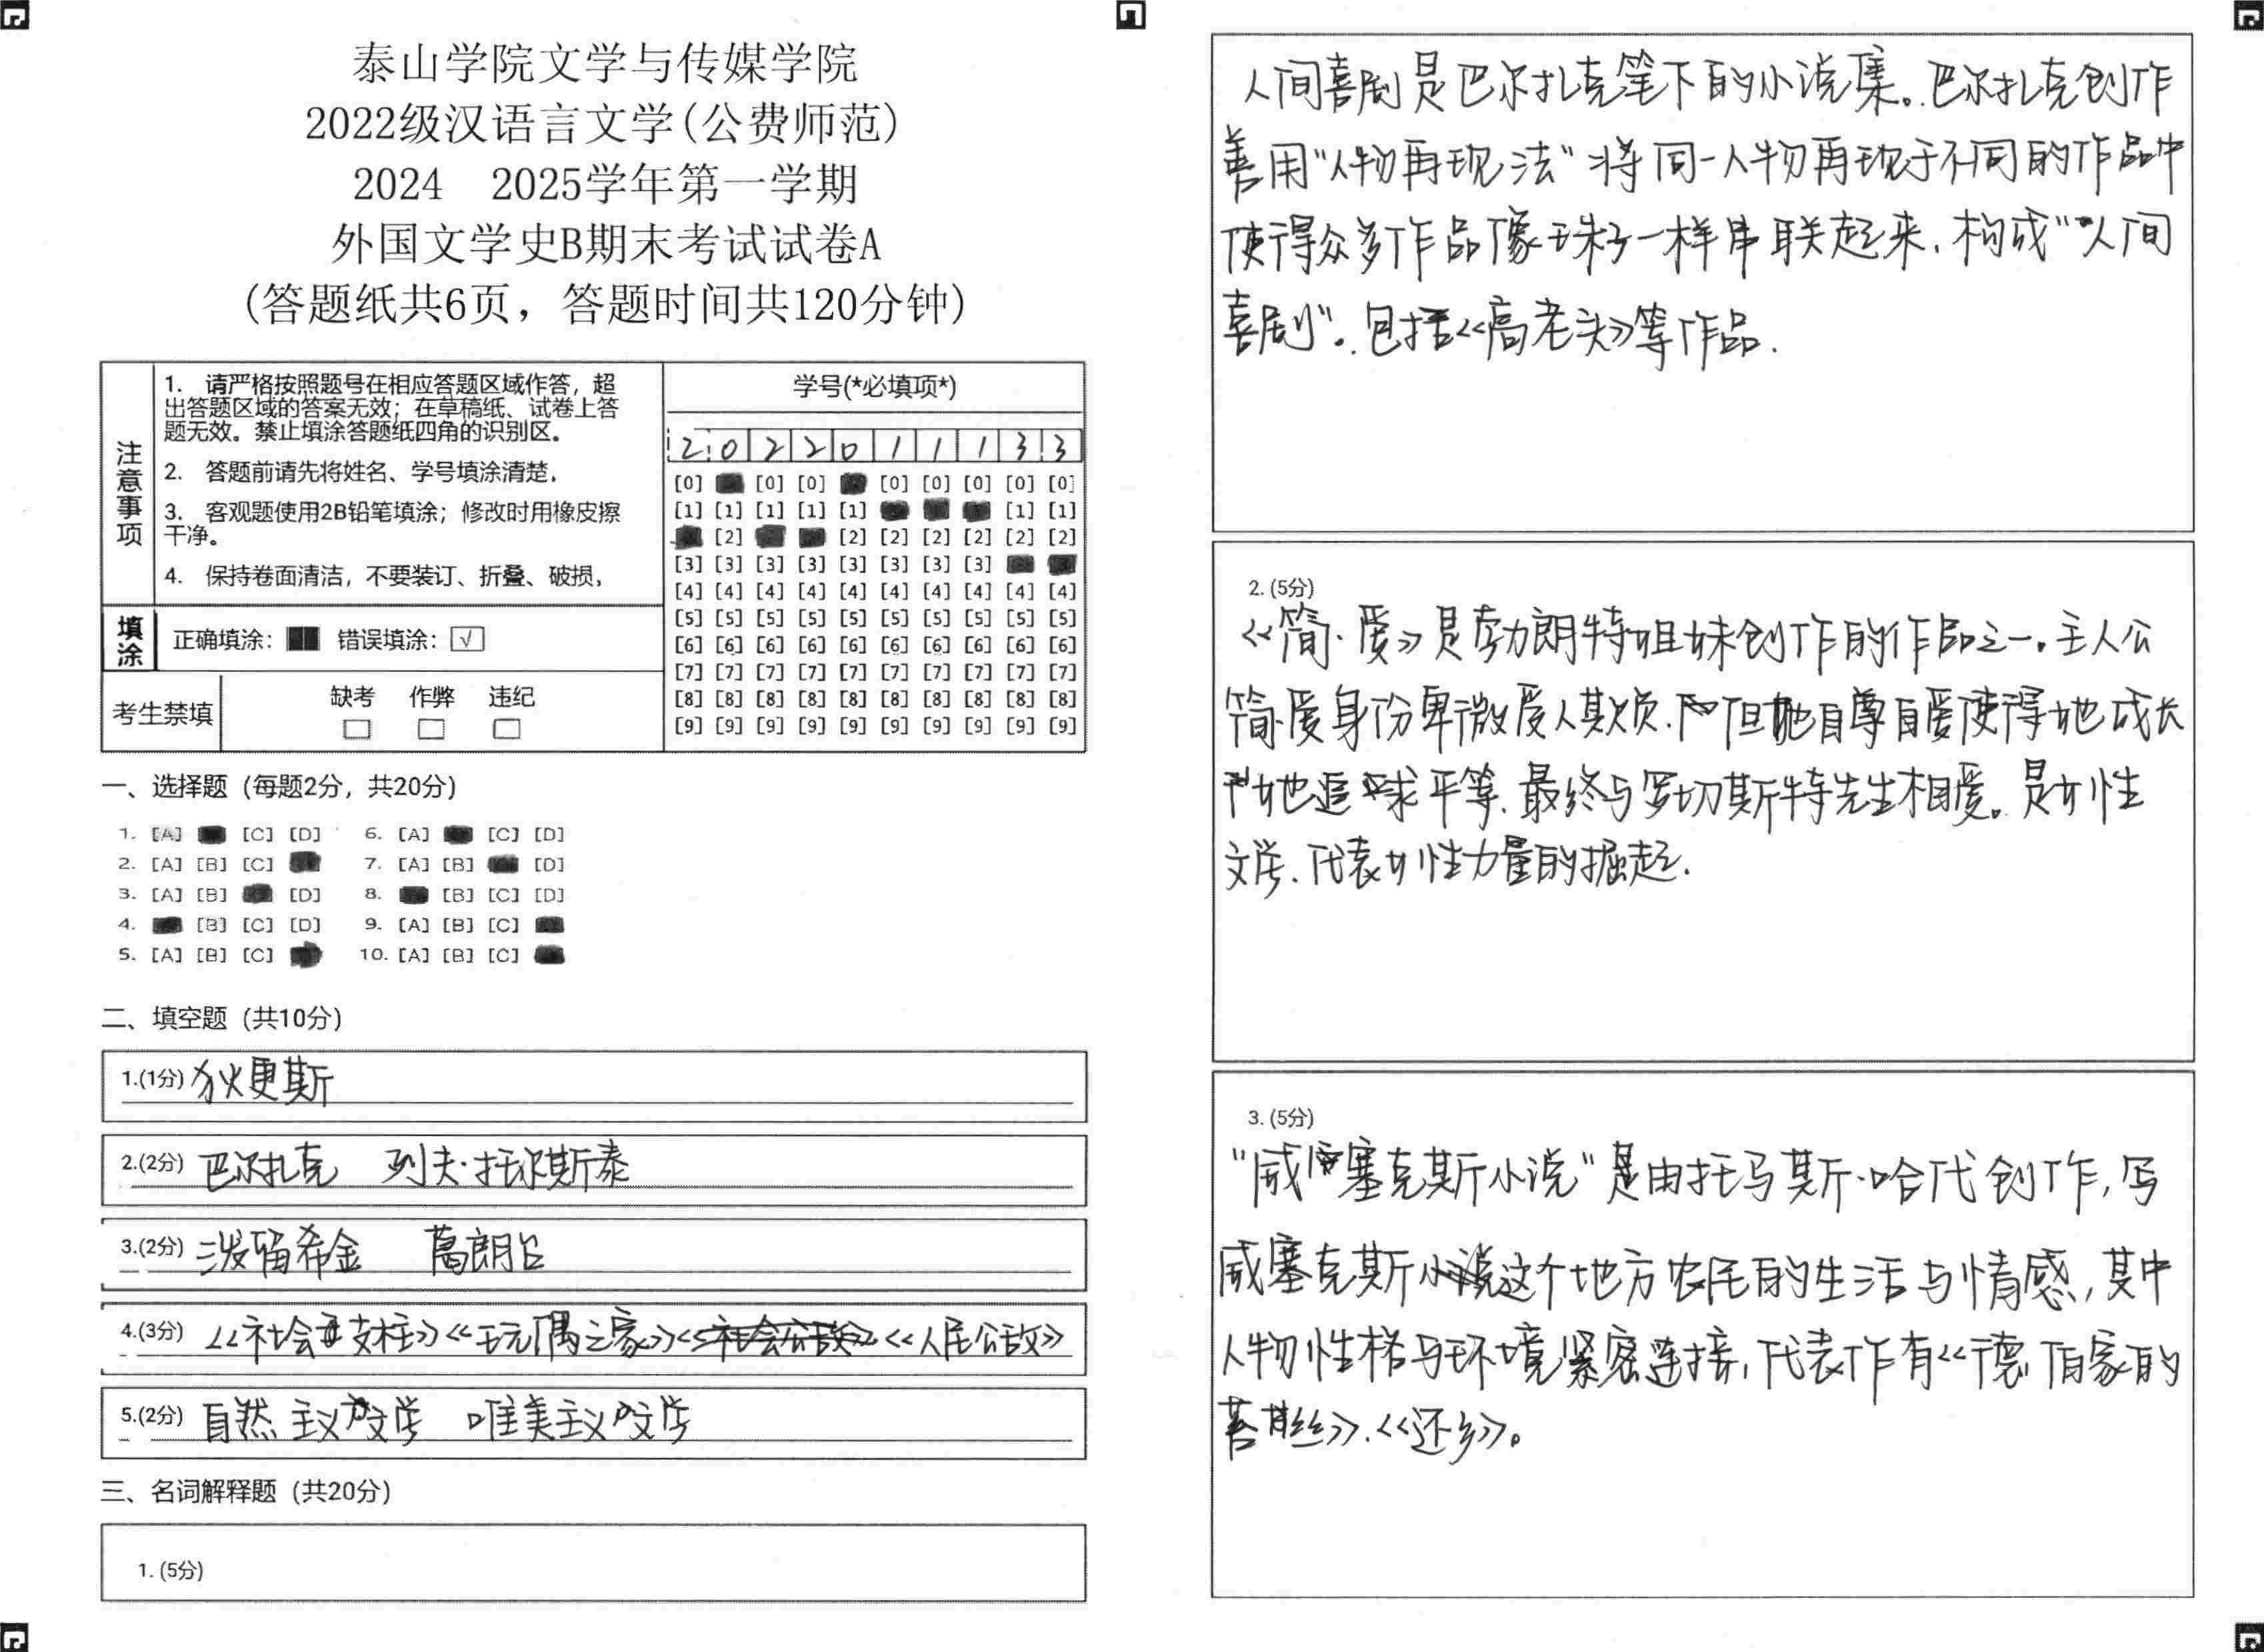 泰山学院文学与传媒学院
2022级汉语言文学(公费师范)
2024 2025学年第一学期
外国文学史B期末考试试卷A
(答题纸共6页，答题时间共120分钟)
注意事项
1. 请严格按照题号在相应答题区域作答，超
出答题区域的答案无效；在草稿纸、试卷上答
题无效。禁止填涂答题纸四角的识别区。
2. 答题前请先将姓名、学号填涂清楚，
3. 客观题使用2B铅笔填涂；修改时用橡皮擦
干净。
4. 保持卷面清洁，不要装订、折叠、破损，
填涂 正确填涂： 错误填涂：√
考生禁填 缺考 作弊 违纪
学号(*必填项*)
2 0 2 2 0 1 1 1 3 3
[0] [0] [0] [0] [0] [0] [0] [0]
[1] [1] [1] [1] [1] [1] [1]
[2] [2] [2] [2] [2] [2] [2]
[3] [3] [3] [3] [3] [3] [3] [3]
[4] [4] [4] [4] [4] [4] [4] [4] [4] [4]
[5] [5] [5] [5] [5] [5] [5] [5] [5] [5]
[6] [6] [6] [6] [6] [6] [6] [6] [6] [6]
[7] [7] [7] [7] [7] [7] [7] [7] [7] [7]
[8] [8] [8] [8] [8] [8] [8] [8] [8] [8]
[9] [9] [9] [9] [9] [9] [9] [9] [9] [9]
一、选择题 (每题2分，共20分)
1. [A] [C] [D] 6. [A] [C] [D]
2. [A] [B] [C] 7. [A] [B] [D]
3. [A] [B] [D] 8. [B] [C] [D]
4. [B] [C] [D] 9. [A] [B] [C]
5. [A] [B] [C] 10. [A] [B] [C]
二、填空题 (共10分)
1.(1分) 狄更斯
2.(2分) 巴尔扎克 列夫·托尔斯泰
3.(2分) 泼留希金 葛朗台
4.(3分) 《社会支柱》《玩偶之家》《人民公敌》
5.(2分) 自然主义文学 唯美主义文学
三、名词解释题 (共20分)
1. (5分)
人间喜剧是巴尔扎克笔下的小说集。巴尔扎克创作
善用"人物再现法"将同一人物再现于不同的作品中
使得众多作品像珠子一样串联起来，构成"人间
喜剧"。包括《高老头》等作品.
2. (5分)
《简·爱》是勃朗特姐妹创作的作品之一。主人公
简·爱身份卑微受人欺负.但她自尊自爱使得她成长
她追求平等.最终与罗切斯特先生相爱。是女性
文学.代表女性力量的掘起.
3. (5分)
"威塞克斯小说"是由托马斯·哈代创作，写
威塞克斯这个地方农民的生活与情感，其中
人物性格与环境紧密连接，代表作有《德伯家的
苔丝》.《还乡》。